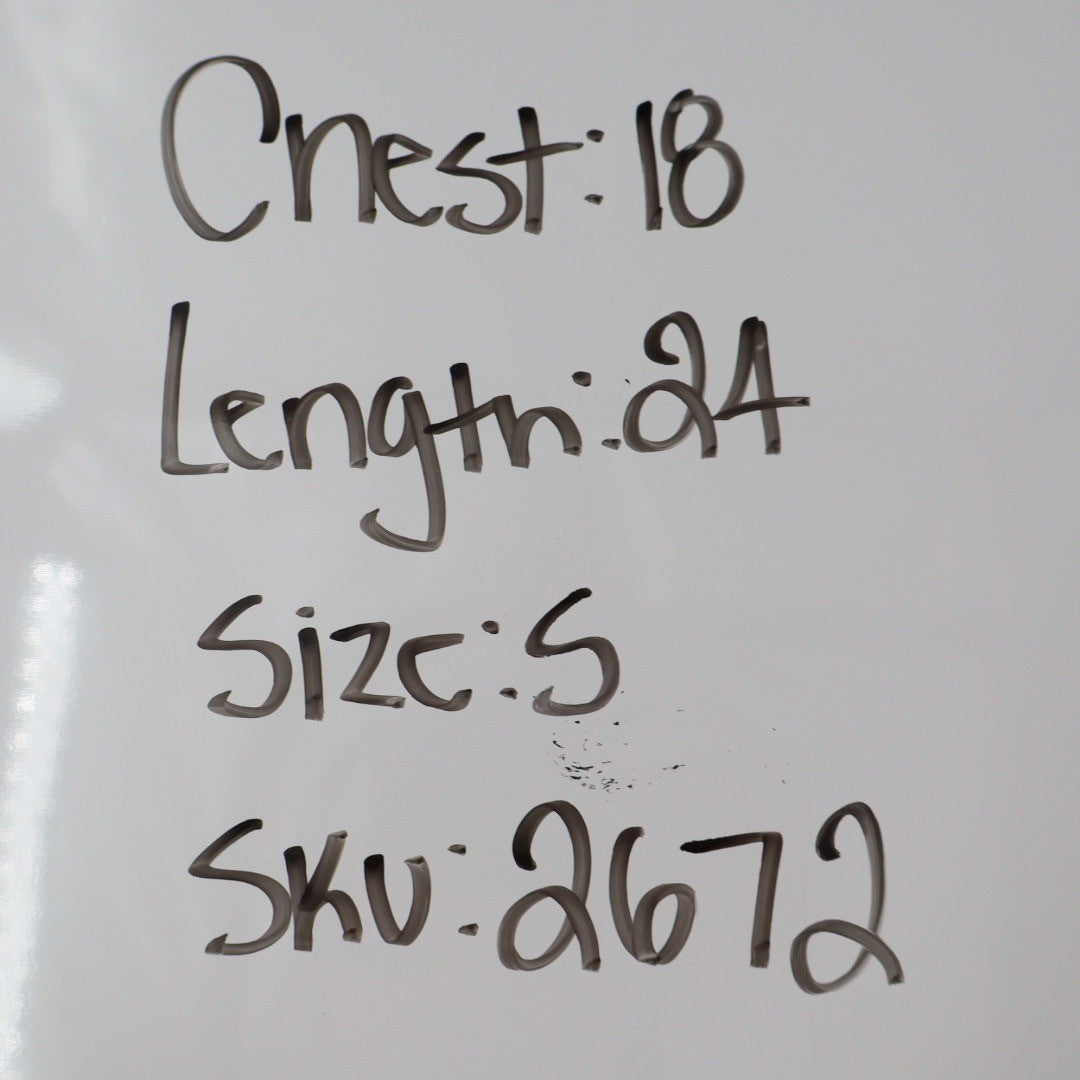 Chest: 18
Length: 24
Size: S
SKU: 2672